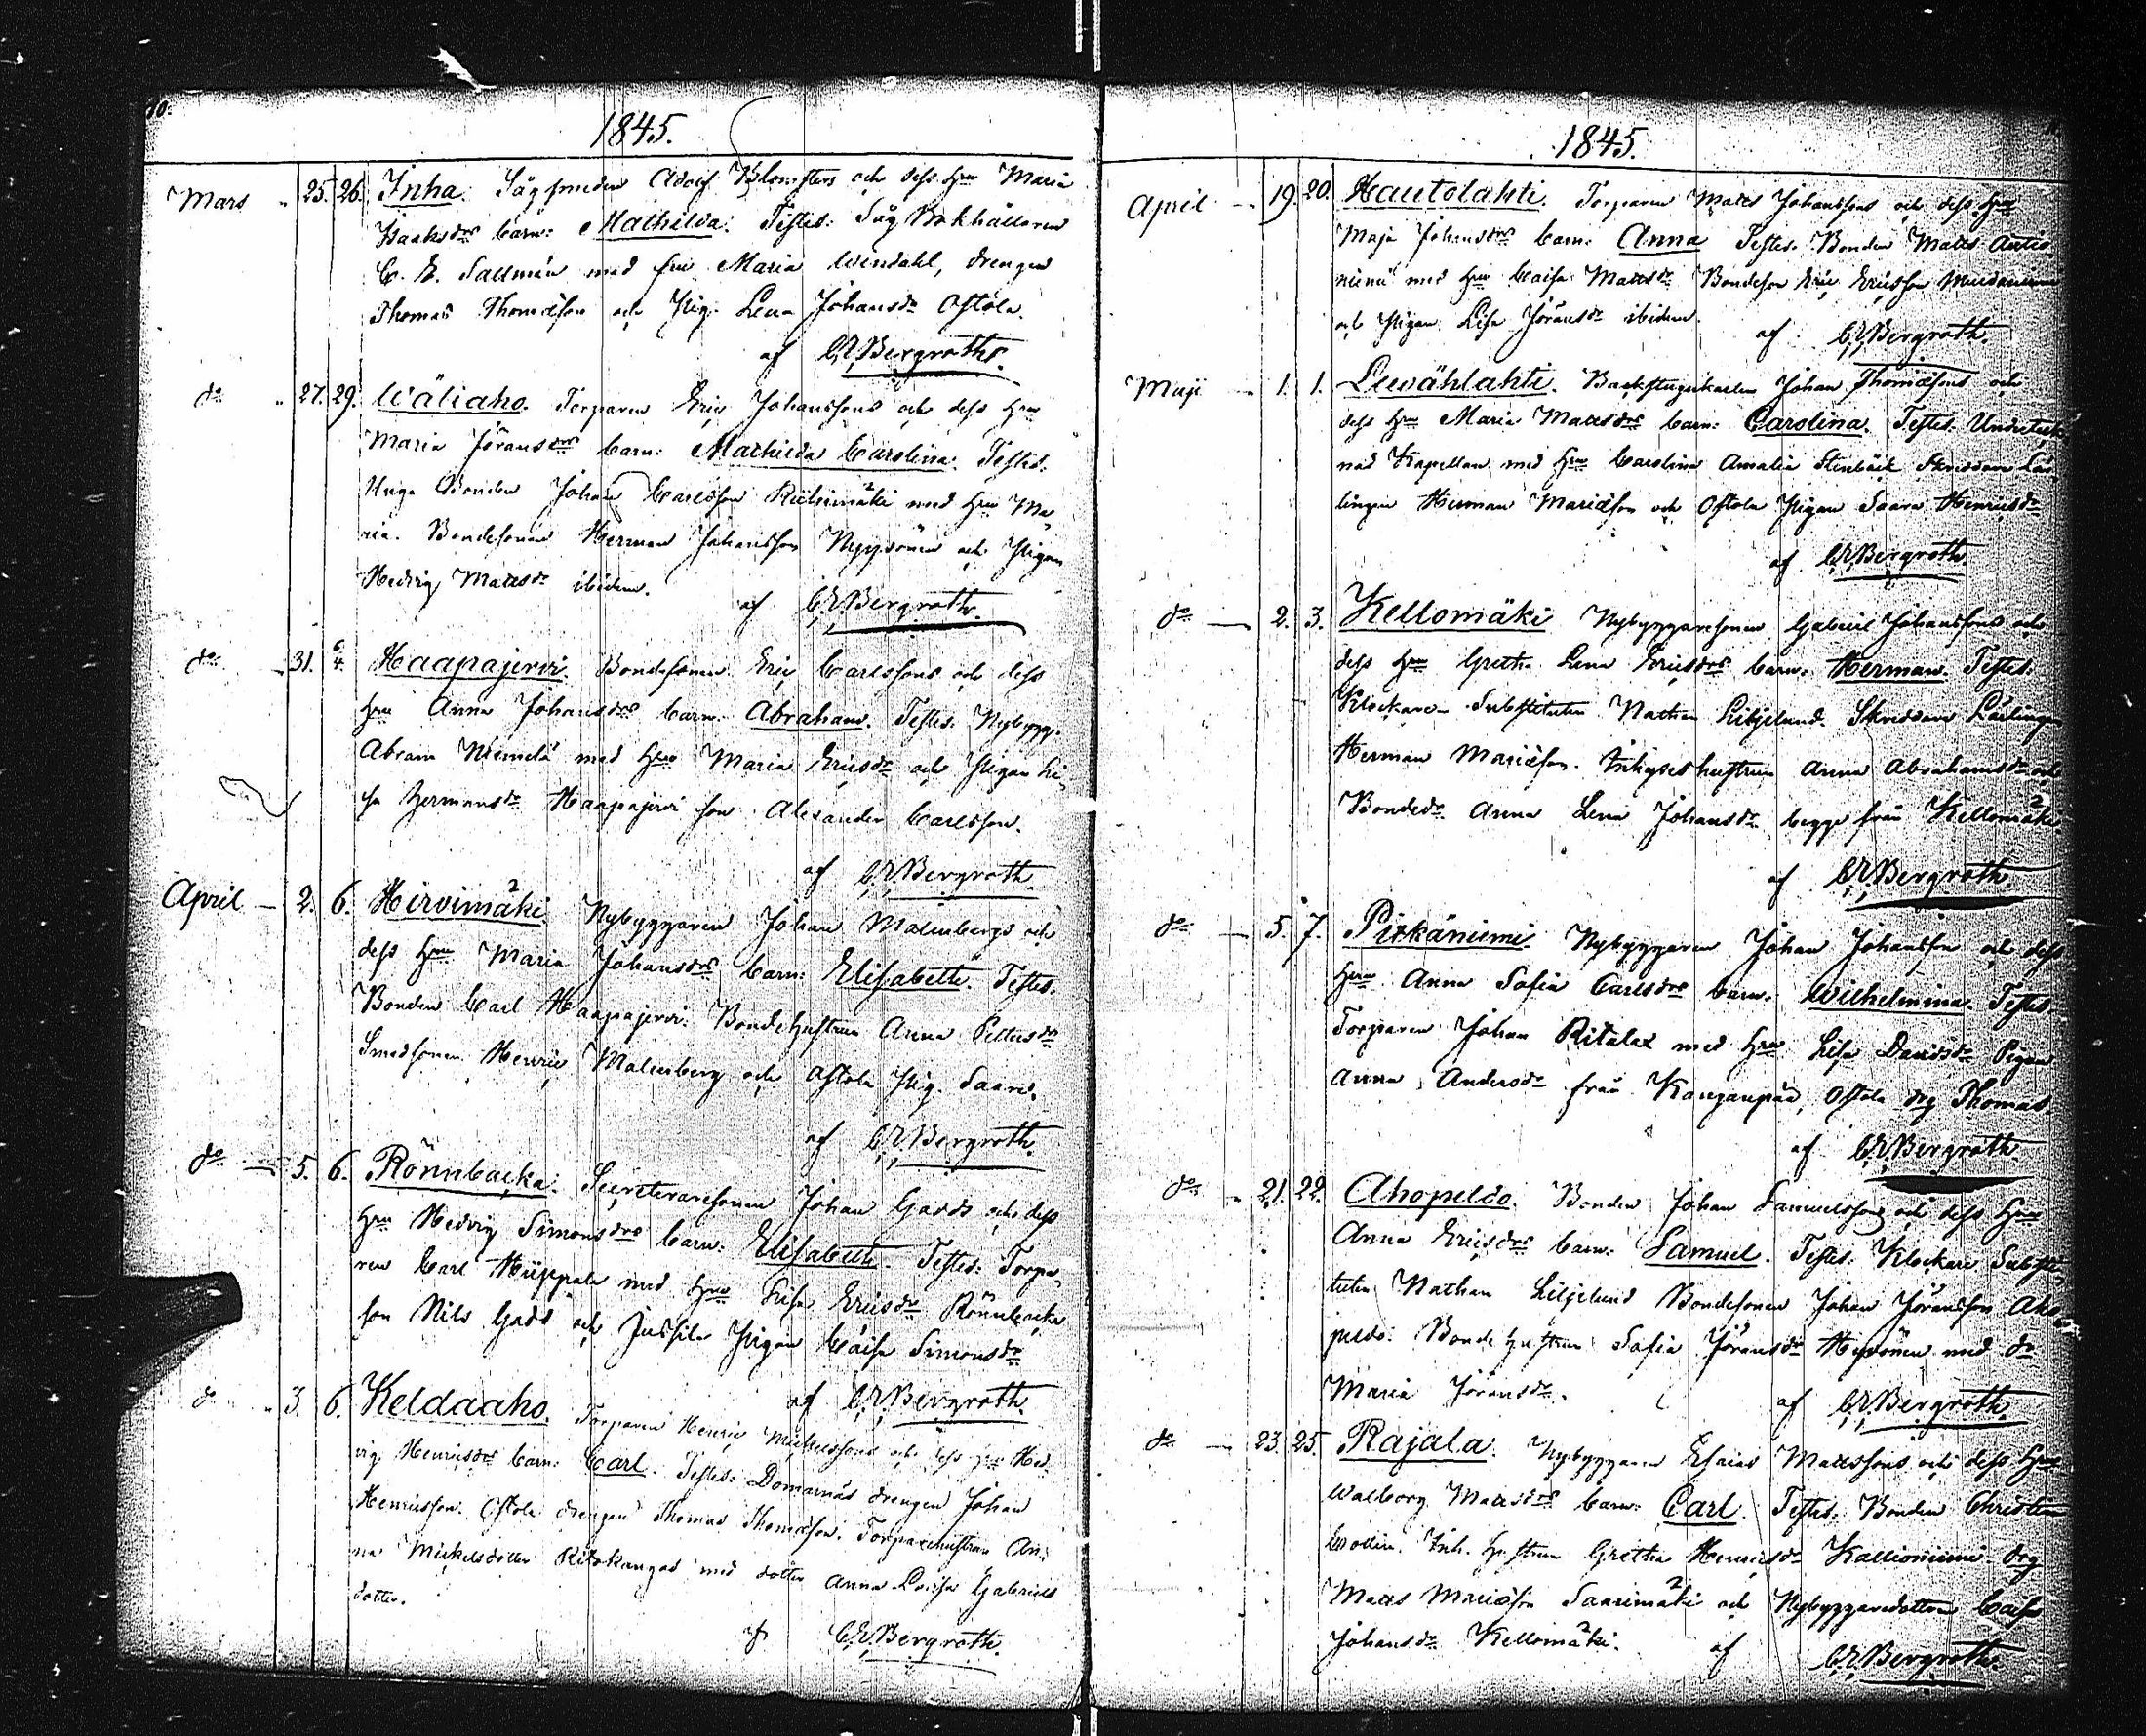 10.
1845.
Mars 25. 26. Inha. Sågsmeden Adolf Blomsters och dess Hru Maria
Isaksdrs barn: Mathilda. Testes: Såg Bokhållaren
C. E. Sallmén med fru Maria Wendahl, drengen
Thomas Thomasson och Pig. Lena Johansdr Ostola.
af C. E. Bergroth.
do 27. 29. Wäliaho. Torparen Eric Johanssons och dess Hru
Maria Jöransdrs barn: Mathilda Carolina. Testes:
Unga Bonden Johan Carlsson Riihimäki med Hru Ma
ria. Bondesonen Herman Johansson och Pigan
Hedvig Mattsdr ibidem.
af C. E. Bergroth.
do 31. 6/4. Haapajervi. Bondesonen Eric Carlssons och dess
Hru Anna Johansdrs barn: Abraham. Testes: Nybygg.
Abram Niemelä med Hru Maria Ericsdr och Pigan Li
sa Hermansdr Haapajervi son Alexander Carlsson.
af C. E. Bergroth.
April 2. 6. Hirvimäki. Nybyggaren Johan Malmbergs och
dess Hru Maria Johansdrs barn: Elisabeth. Testes.
Bonden Carl Haapajervi. Bondehustrun Anna Pettersdr
Smedsonen Henric Malmberg och Ostola Pig. Saara.
af C. E. Bergroth.
do 5. 6. Rönnbacka. Secreteraresonen Johan Gadds och dess
Hru Hedvig Simonsdrs barn: Elisabeth. Testes: Torpa
ren Carl Hiippala med Hru Lisa Ericsdr Rönnbacka
son Nils Gadd och Jussila Pigan Caisa Simonsdr
af C. E. Bergroth.
do 3. 6. Keldaaho. Torparen Henric Mickelssons och dess Hru Hed
vig Henricsdrs barn: Carl. Testes: Domarnäs drengen Johan
Henricsson. Ostola drengen Thomas Thomasson. Torparehustrun An
na Mickelsdotter Ritokangas med dotter Anna Lovisa Gabriels
dotter.
af C. E. Bergroth.
1845.
April 19. 20. Hautolahti. Torparen Matts Johanssons och dess Hru
Maja Johansdrs barn: Anna Testes. Bonden Matts
med Hru Caisa Mattsdr Bondeson Eric Ericsson
och Pigan Lisa Jöransdr ibidem.
af C. E. Bergroth.
Maji 1. 1. Levählahti. Backstugukarlen Johan Thomassons och
dess Hru Maria Mattsdrs barn: Carolina. Testes. Undarteck
nad Kapellan med Hru Carolina Amalia Stenbäck Skreddare Lär
lingen Herman Mariasson och Ostola Pigan Saara Henricsdr
af C. E. Bergroth.
do 2. 3. Kellomäki Nybyggaresonen Gabriel Johanssons och
dess Hru Gretha Lena Ericsdrs barn: Herman. Testes:
Klockare Substituten Nathan Liljelund. Skreddare Lärlingen
Herman Mariasson. Inhyseshustrun Anna Abrahamsdr och
Bondedr. Anna Lena Johansdr begge från Kellomäki
af C. E. Bergroth.
do 5. 7. Pirkäniemi. Nybyggaren Johan Johansson och dess
Hru Anna Sofia Carlsdrs barn: Wilhelmina. Testes
Torparen Johan Ritalax med Hru Lisa Davidsdr Pigan
Anna Andersdr från Kangaspää, Ostola drg Thomas
af C. E. Bergroth.
do 21. 22. Ahopeldo. Bonden Johan Samuelssons och dess Hru
Anna Ericsdrs barn: Samuel. Testes: Klockare Substi
tuten Nathan Liljelund Bondesonen Johan Jöransson Aho
peldo. Bondehustrun Sofia Jöransdr med dr
Maria Jöransdr.
af C. E. Bergroth.
do 23. 25. Rajala. Nybyggaren Esaias Mattssons och dess Hru
Walborg Mattsdrs barn: Carl. Testes: Bonden Christian
Collin. Inh. Hustrun Gretha Henricsdr Kallioniemi drg
Matts Mariasson Saarimäki och Nybyggaredottren Caisa
Johansdr Kellomäki.
af C. E. Bergroth.